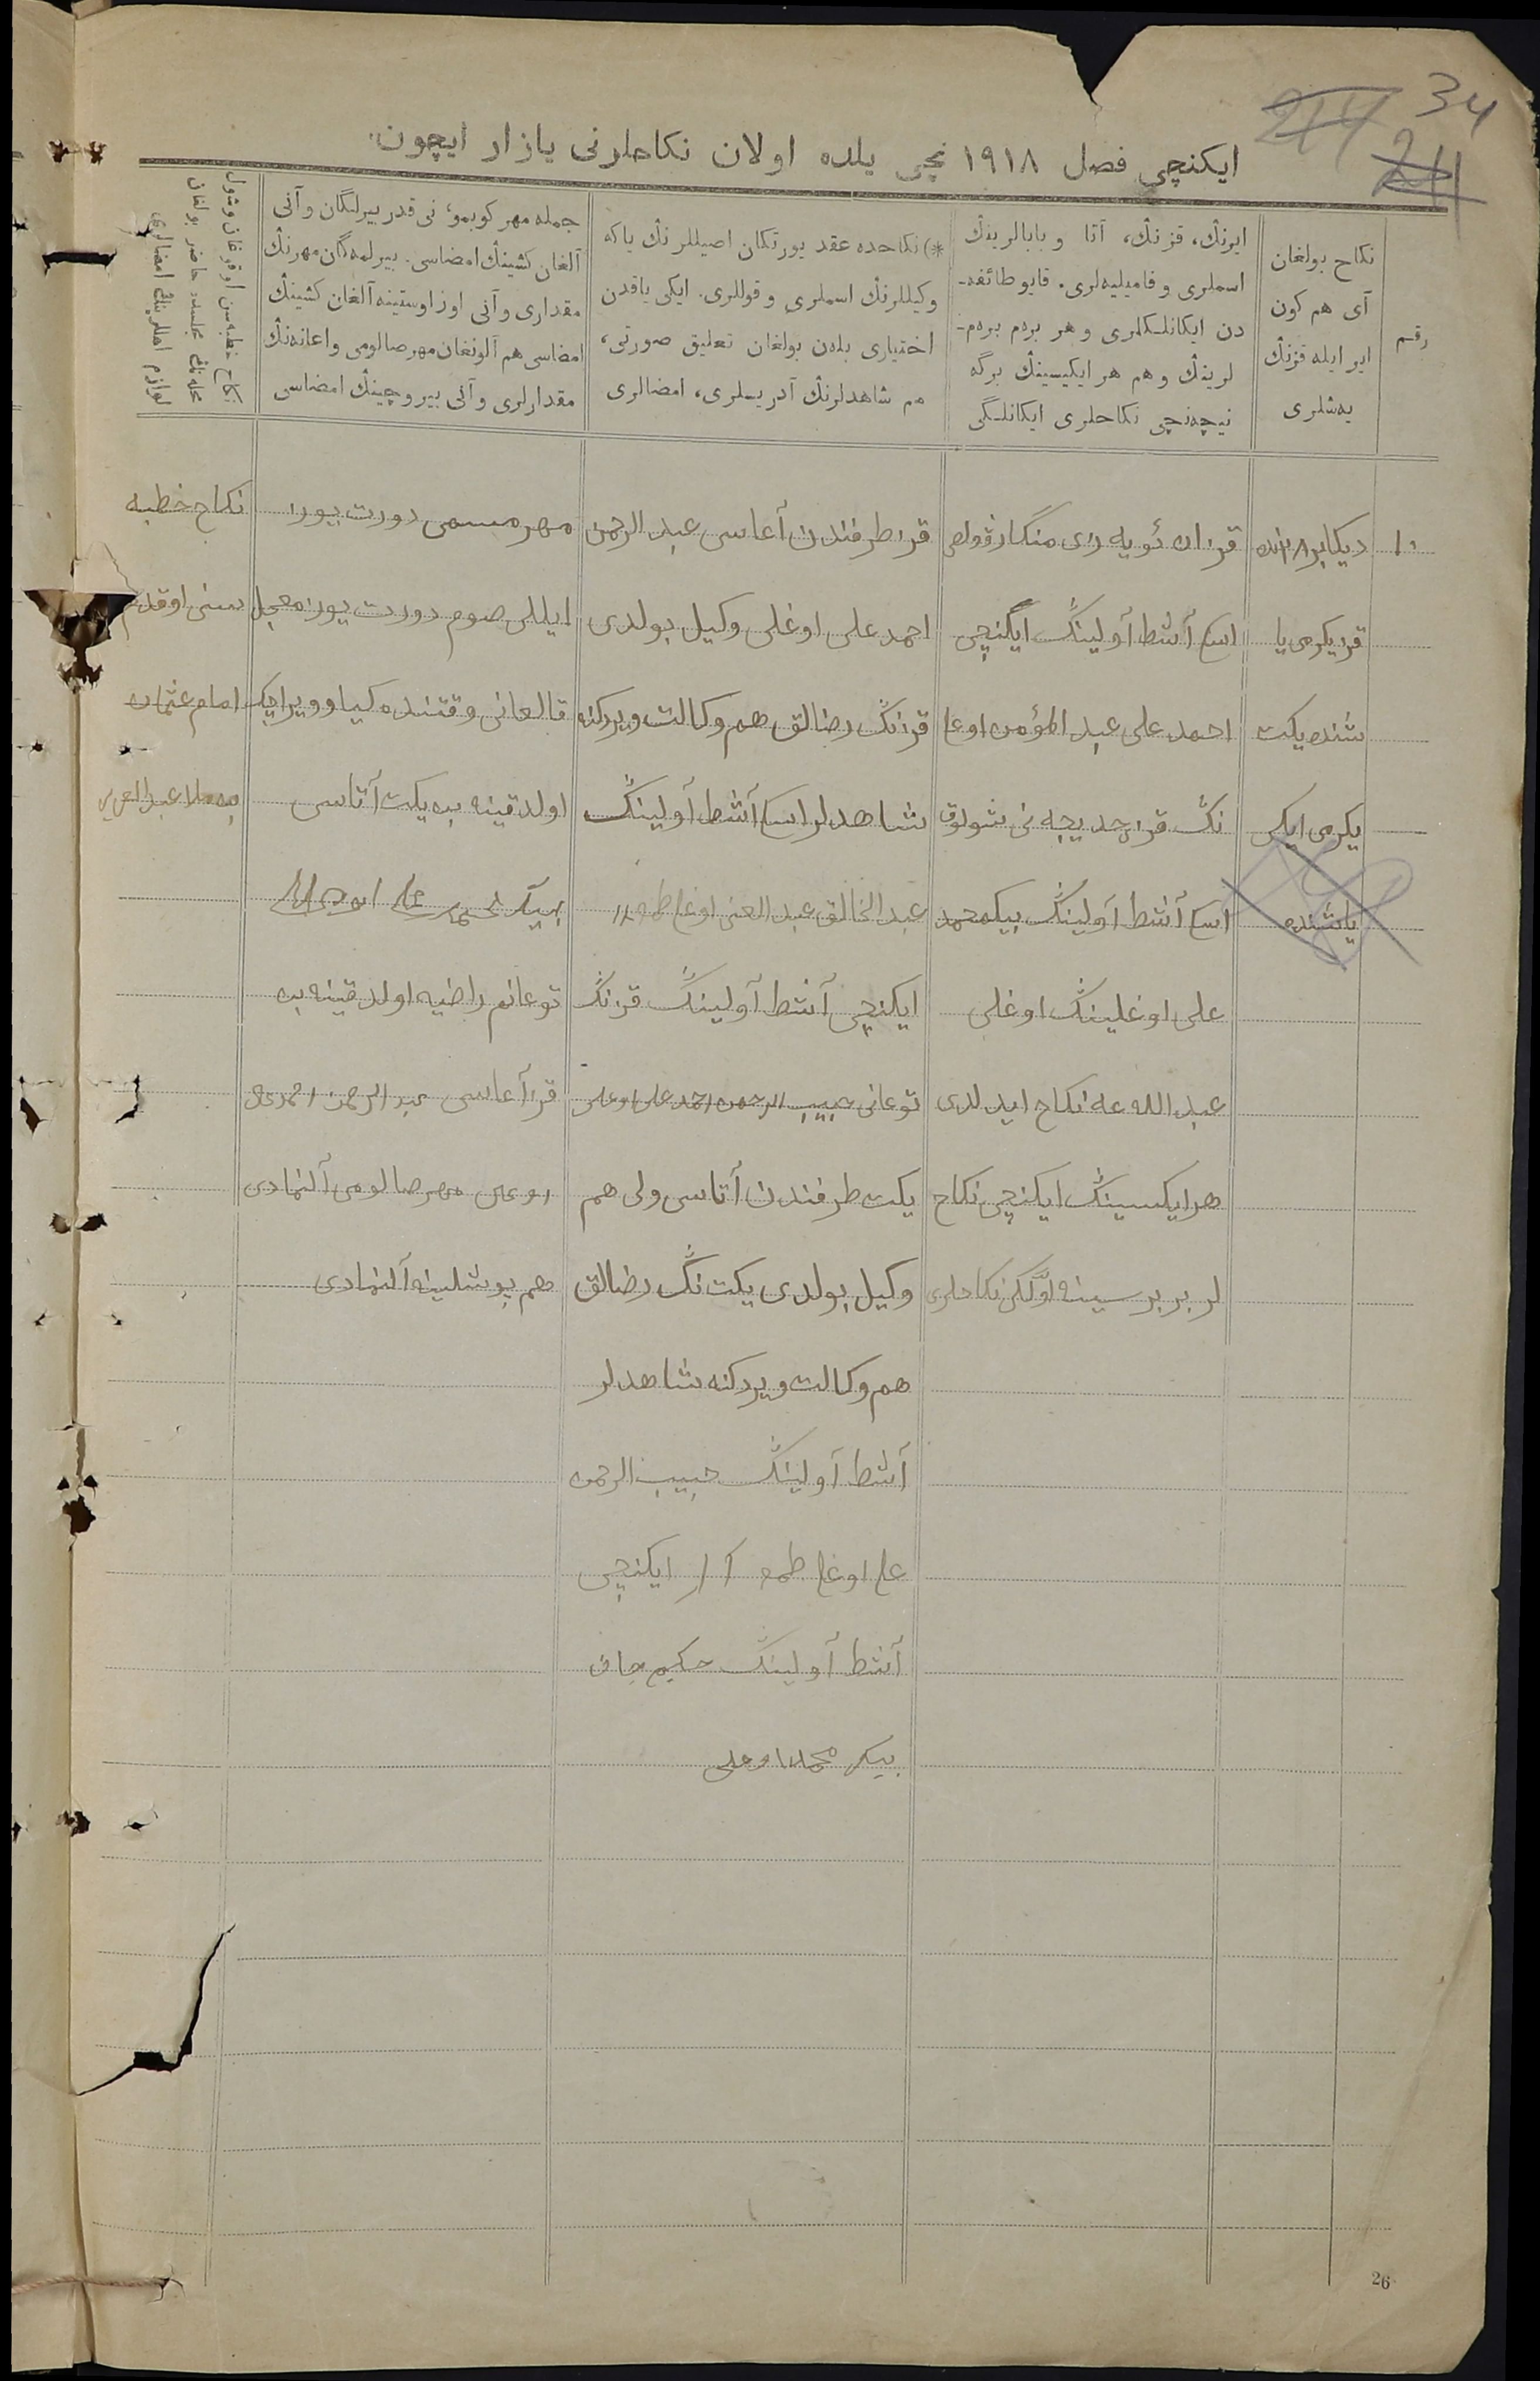 34
ایکنچی فصل ١٩١٨ نچی یلده اولان نکاحلرنی یازار ایچون.
رقم
نکاح بولغان
آی هم کون
ایر ایله قزنڭ
یه‌شلری
ایرنڭ، قزنڭ، آتا و بابالرینڭ
اسملری و فامیلیه‌لری. قایو طائفه‌ـ
دن ایکانلـکلری و هر برم برەم‌ـ
لرینڭ و هم هر ایکیسینڭ برگه
نیچه‌نچی نکاحلری ایکانلـگی
*) نکاحده عقد یورتکان اصیللرنڭ یاکه
وکیللرنڭ اسملری و قوللری. ایکی یاقدن
اختیاری بله‌ن بولغان تعلیق صورتی،
هم شاهدلرنڭ آدریسلری، امضالری
جمله مهر کوبمو، نی قدر بیرلگان و آنی
آلغان کشینڭ امضاسی. بیرلمه‌گان مهرنڭ
مقداری و آنی اوز اوستینه آلغان کشینڭ
امضاسی هم آلونغان مهر صالومی و اعانه‌نڭ
مقدارلری و آنی بیروچینڭ امضاسی
نکاح خطبه‌سن اوقوغان و شول
محله‌نڭ مجلسده حاضر بولغان
لوازم اهللرینڭ امضالری
١٠
دیکابر ٢٨ نده
قز یکرمی یا
شنده یکت
یکرمی ایکی
یاشنده
قزان ئویه زی منگار ۋولصی
اسکی آشط آولینڭ ایگنچی
احمد علی عبد المؤمن اوغلی
نڭ قزی خدیجه نی شولوق
اسکی آشط آولینڭ بیکمحمد
علی اوغلینڭ اوغلی
عبد الله غه نکاح ایدلدی
هر ایکسینڭ ایکنچی نکاح
لر بر برسینه اوّلکی نکاحلری
قز طرفندن آغاسی عبد الرحمن
احمد علی اوغلی وکیل بولدی
قزنڭ رضالق هم وکالت ویردکنه
شاهدلر اسکی آشط آولینڭ
عبد الخالق عبد الغنی اوغلی
ایکنچی آشط آولینڭ قزنڭ
توغانی حبیب الرحمن احمد علی اوغلی
یکت طرفندن آتاسی ولی هم
وکیل بولدی یکت نڭ رضالق
هم وکالت ویردکنه شاهدلر
آشط آولینڭ حبیب الرحمن
علی اوغلی ایکنچی
آشط آولینڭ حکیم جان
بیک محمد اوغلی
مهر مسمی دورت یوز
ایللی صوم دورت یوز معجل
قالغانی وقتنده کیاو ویراچک
اولدقینه بن یکت آتاسی
توغانم راضیه اولدقینه بن
قز آغاسی عبد الرحمن احمد علی
اوغلی مهر صالومی آلنمادی
هم بوشلینه آلنمادی
نکاح خطبه
سنی اوقدم
امام عثمان
بن ملا عبد العزیز
26